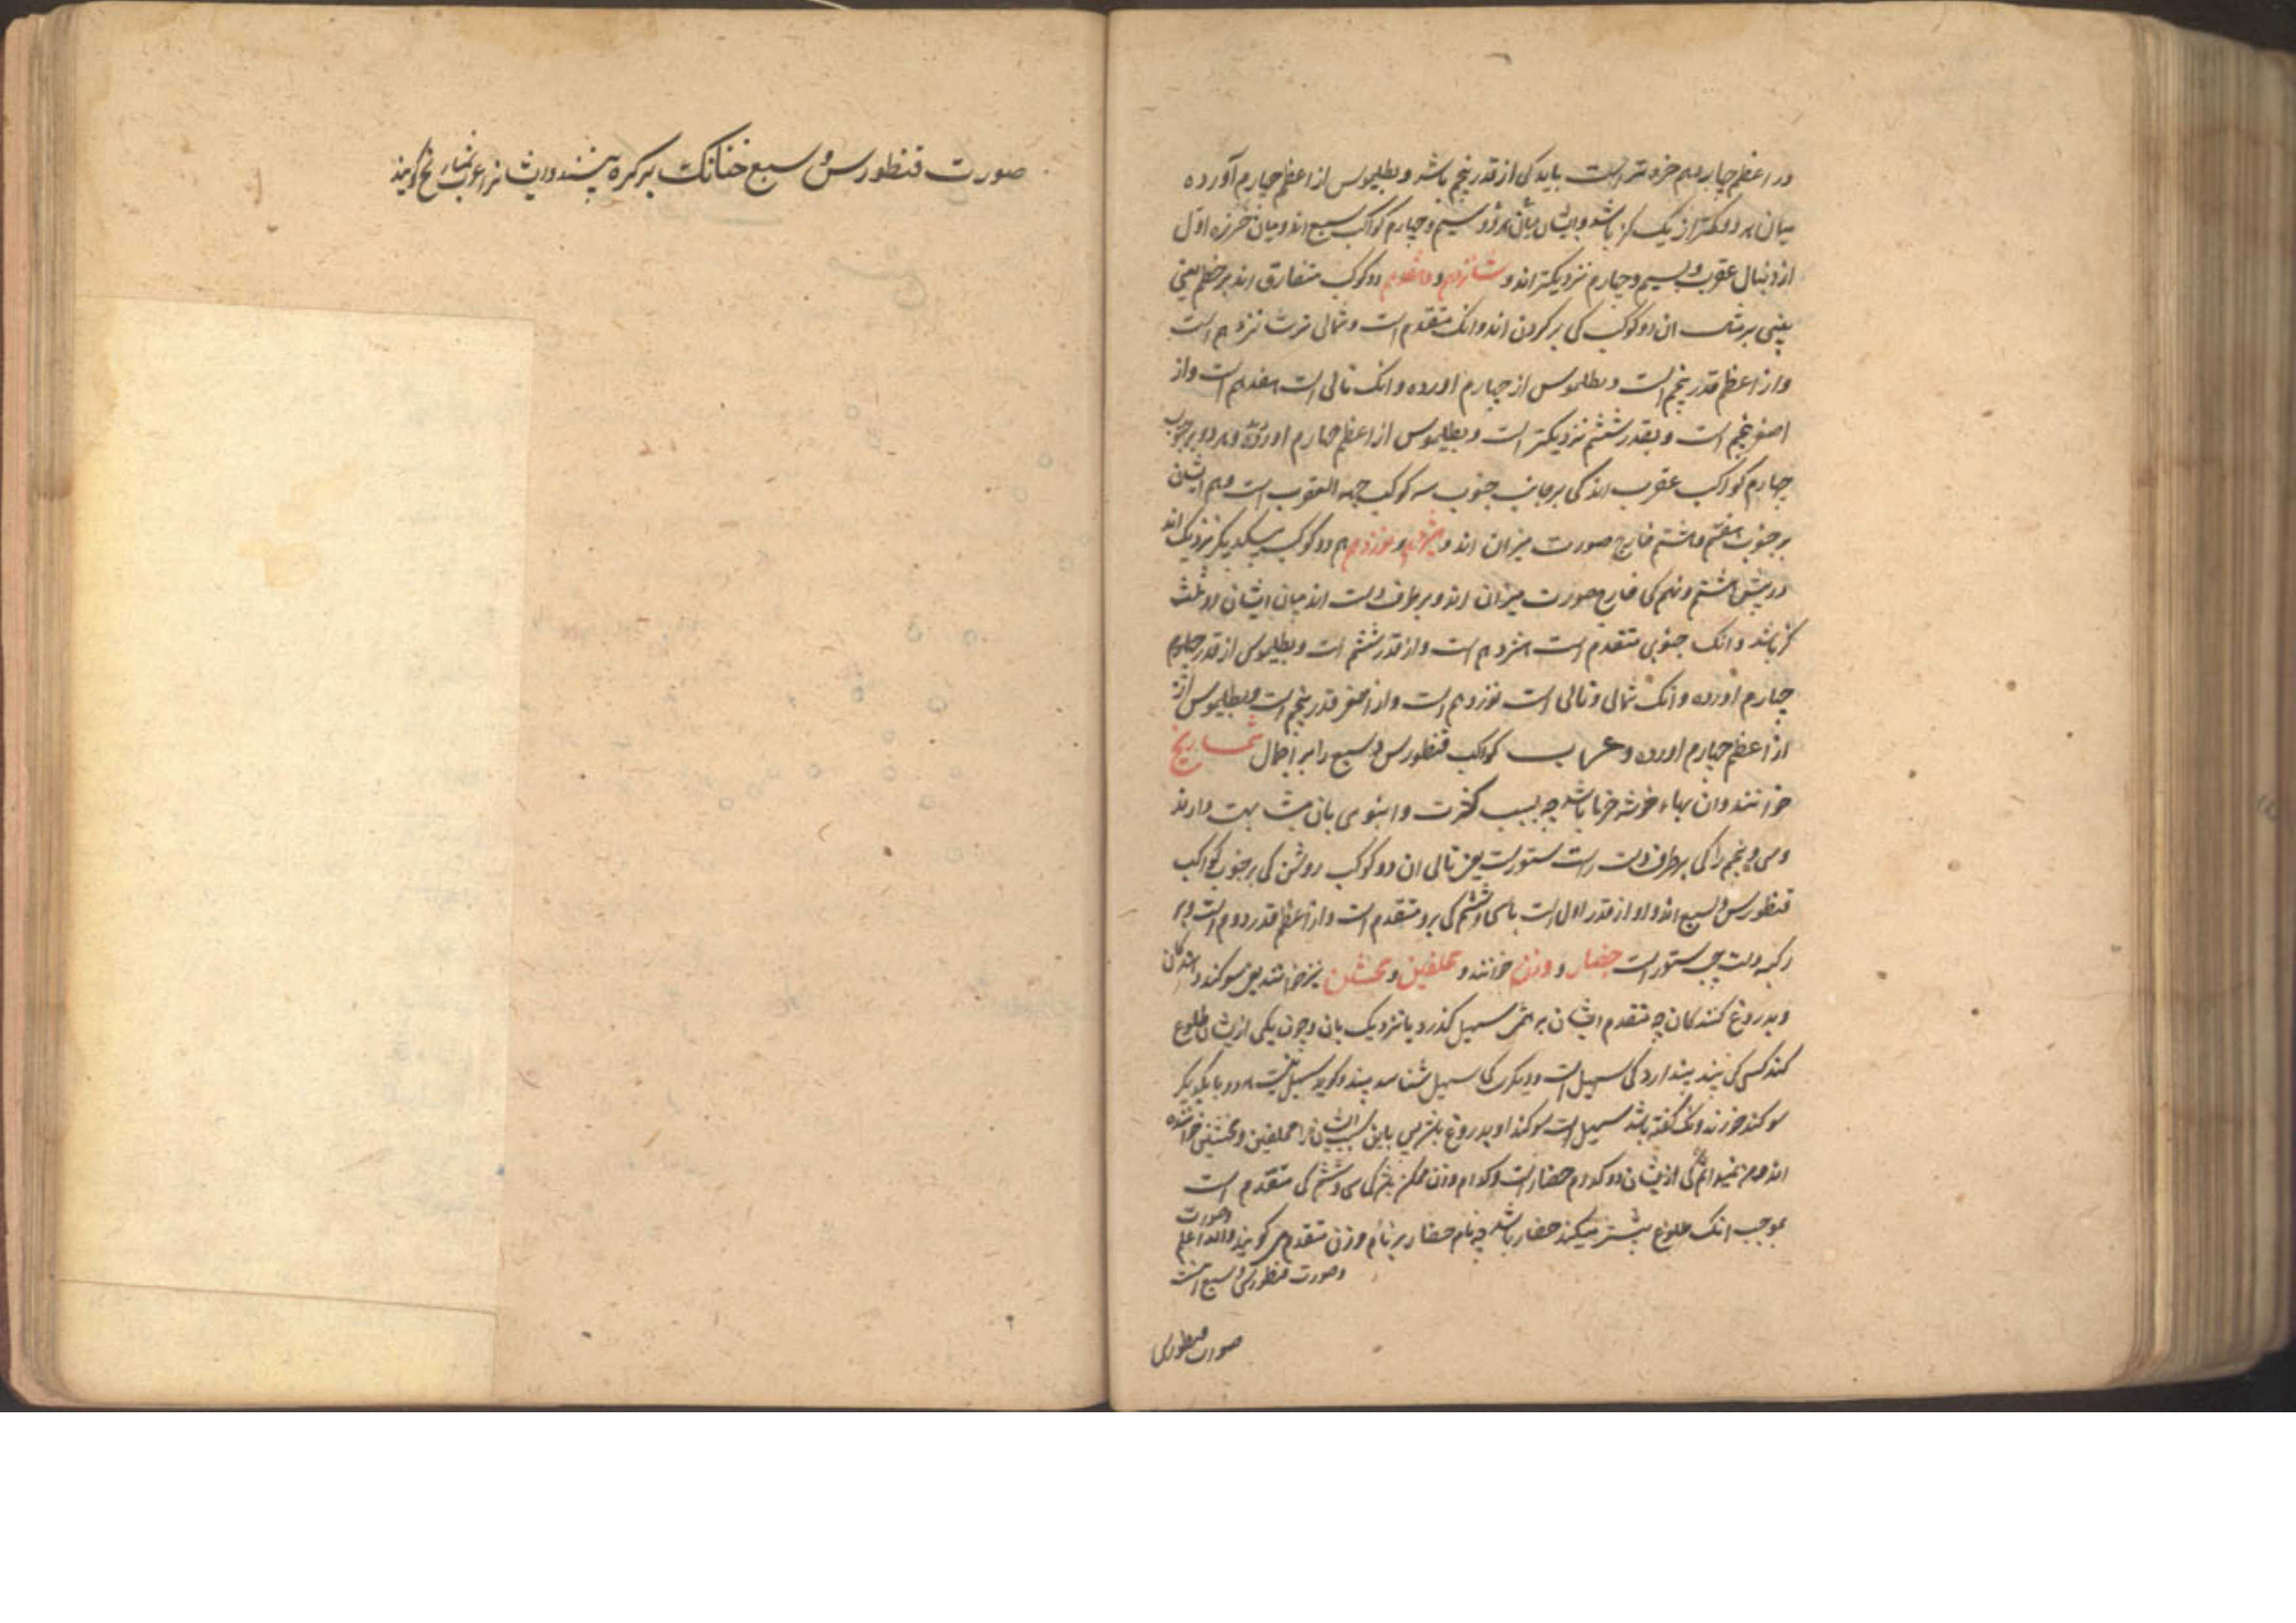 در اعظم چهاردهم خرده‌تر است باید کی از قدر پنجم باشد و بطلیموس از اعظم چهارم آورده
میان هر دو کمتر از یک کز باشد و ایشان میان هر دو سیم و چهارم کواکب سبع اند و میان خرزه اول
از دنبال عقرب و بسیم و چهارم نزدیکتر اند و شانزدهم و هفدهم دو کوکب متفارق اند بر خطم یعنی
بینی برشبه ان دو کوکب کی بر کردن اند و انک متقدم است و شمالی شانزدهم است
و از اعظم قدر پنجم است و بطلیموس از چهارم اورده و انک تالی است هفدهم است و از
اصغر پنجم است و بقدر ششم نزدیکتر است و بطلیموس از اعظم چهارم اورده و هر دو بر جنوب
چهارم کواکب عقرب اند کی بر جانب جنوب سه کوکب جبهه العقرب است و هم ایشان
بر جنوب هفتم و هشتم خارج صورت میزان اند و هژدهم و نوزدهم دو کوکب بیکدیکر نزدیک اند
در پیش هشتم و نهم کی خارج صورت میزان اند و بر طرف دست اند میان ایشان دو ثلث
کز باشد و انک جنوبی متقدم است هژدهم است و از قدر ششم است و بطلیموس از قدر چهارم
چهارم اورده و انک شمالی و تالی است نوزدهم است و از اصغر قدر پنجم است و بطلیموس از
از اعظم چهارم اورده و عرب کواکب قنطورس و سبع را بر اجمال شماریخ
خوانند و ان بهاء خوشه خرما باشد چه بسبب کثرت و انبوهی بان مشابهت دارند
و سی و پنجم را کی بر طرف دست راست ستورست یعنی تالی ان دو کوکب روشن کی بر جنوب کواکب
قنطورس و سبع اند و او از قدر اول است با سی و ششم کی برو متقدم است و از اعظم قدر دوم است و بر
رکبه دست چپ ستورست حضار و وزن خوانند و محلفین و محنثین نیز خوانند یعنی سوکند دهندکان
و بدروغ کنندکان چه متقدم ایشان بر ممر سهیل کذرد یا نزدیک بان و چون یکی ازیشان طلوع
کند کسی کی بیند پندارد کی سهیل است و دیکری کی سهیل شناسد بیند و کوید سهیل نیست هر دو با یکدیکر
سوکند خورند و انک کفته باشد سهیل است سوکند او بدروغ باشد پس باین سبب ایشانرا محلفین و محنثین خوانده
اند و من نمیدانم کی ازیشان دو کدام حضار است و کدام وزن ممکن باشد کی سی و ششم کی متقدم است
بموجب انک طلوع پیشتر میکند حضار باشد چه نام حضار بر نام وزن متقدم می کویند والله اعلم
وصورت
وصورت قنطورس و سبع اینست
صورت قنطورس

صورت قنطورس و سبع چنانک بر کره بینند و ایشانرا عرب شماریخ کویند